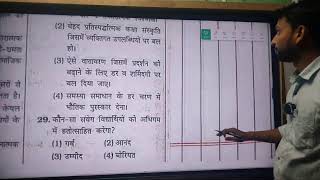 (2) बेहद प्रतिस्पर्द्धात्मक कक्षा संस्कृति
जिसमें व्यक्तिगत उपलब्धियों पर बल
हो।
(3) ऐसे वातावरण जिसमें प्रदर्शन को
बढ़ाने के लिए डर व शर्मिंदगी पर
बल दिया जाए।
(4) समस्या समाधान के हर चरण में
भौतिक पुरस्कार देना।
29. कौन-सा संवेग विद्यार्थियों को अधिगम
में हतोत्साहित करेगा?
(1) गर्व (2) आनंद
(3) उम्मीद (4) बोरियत